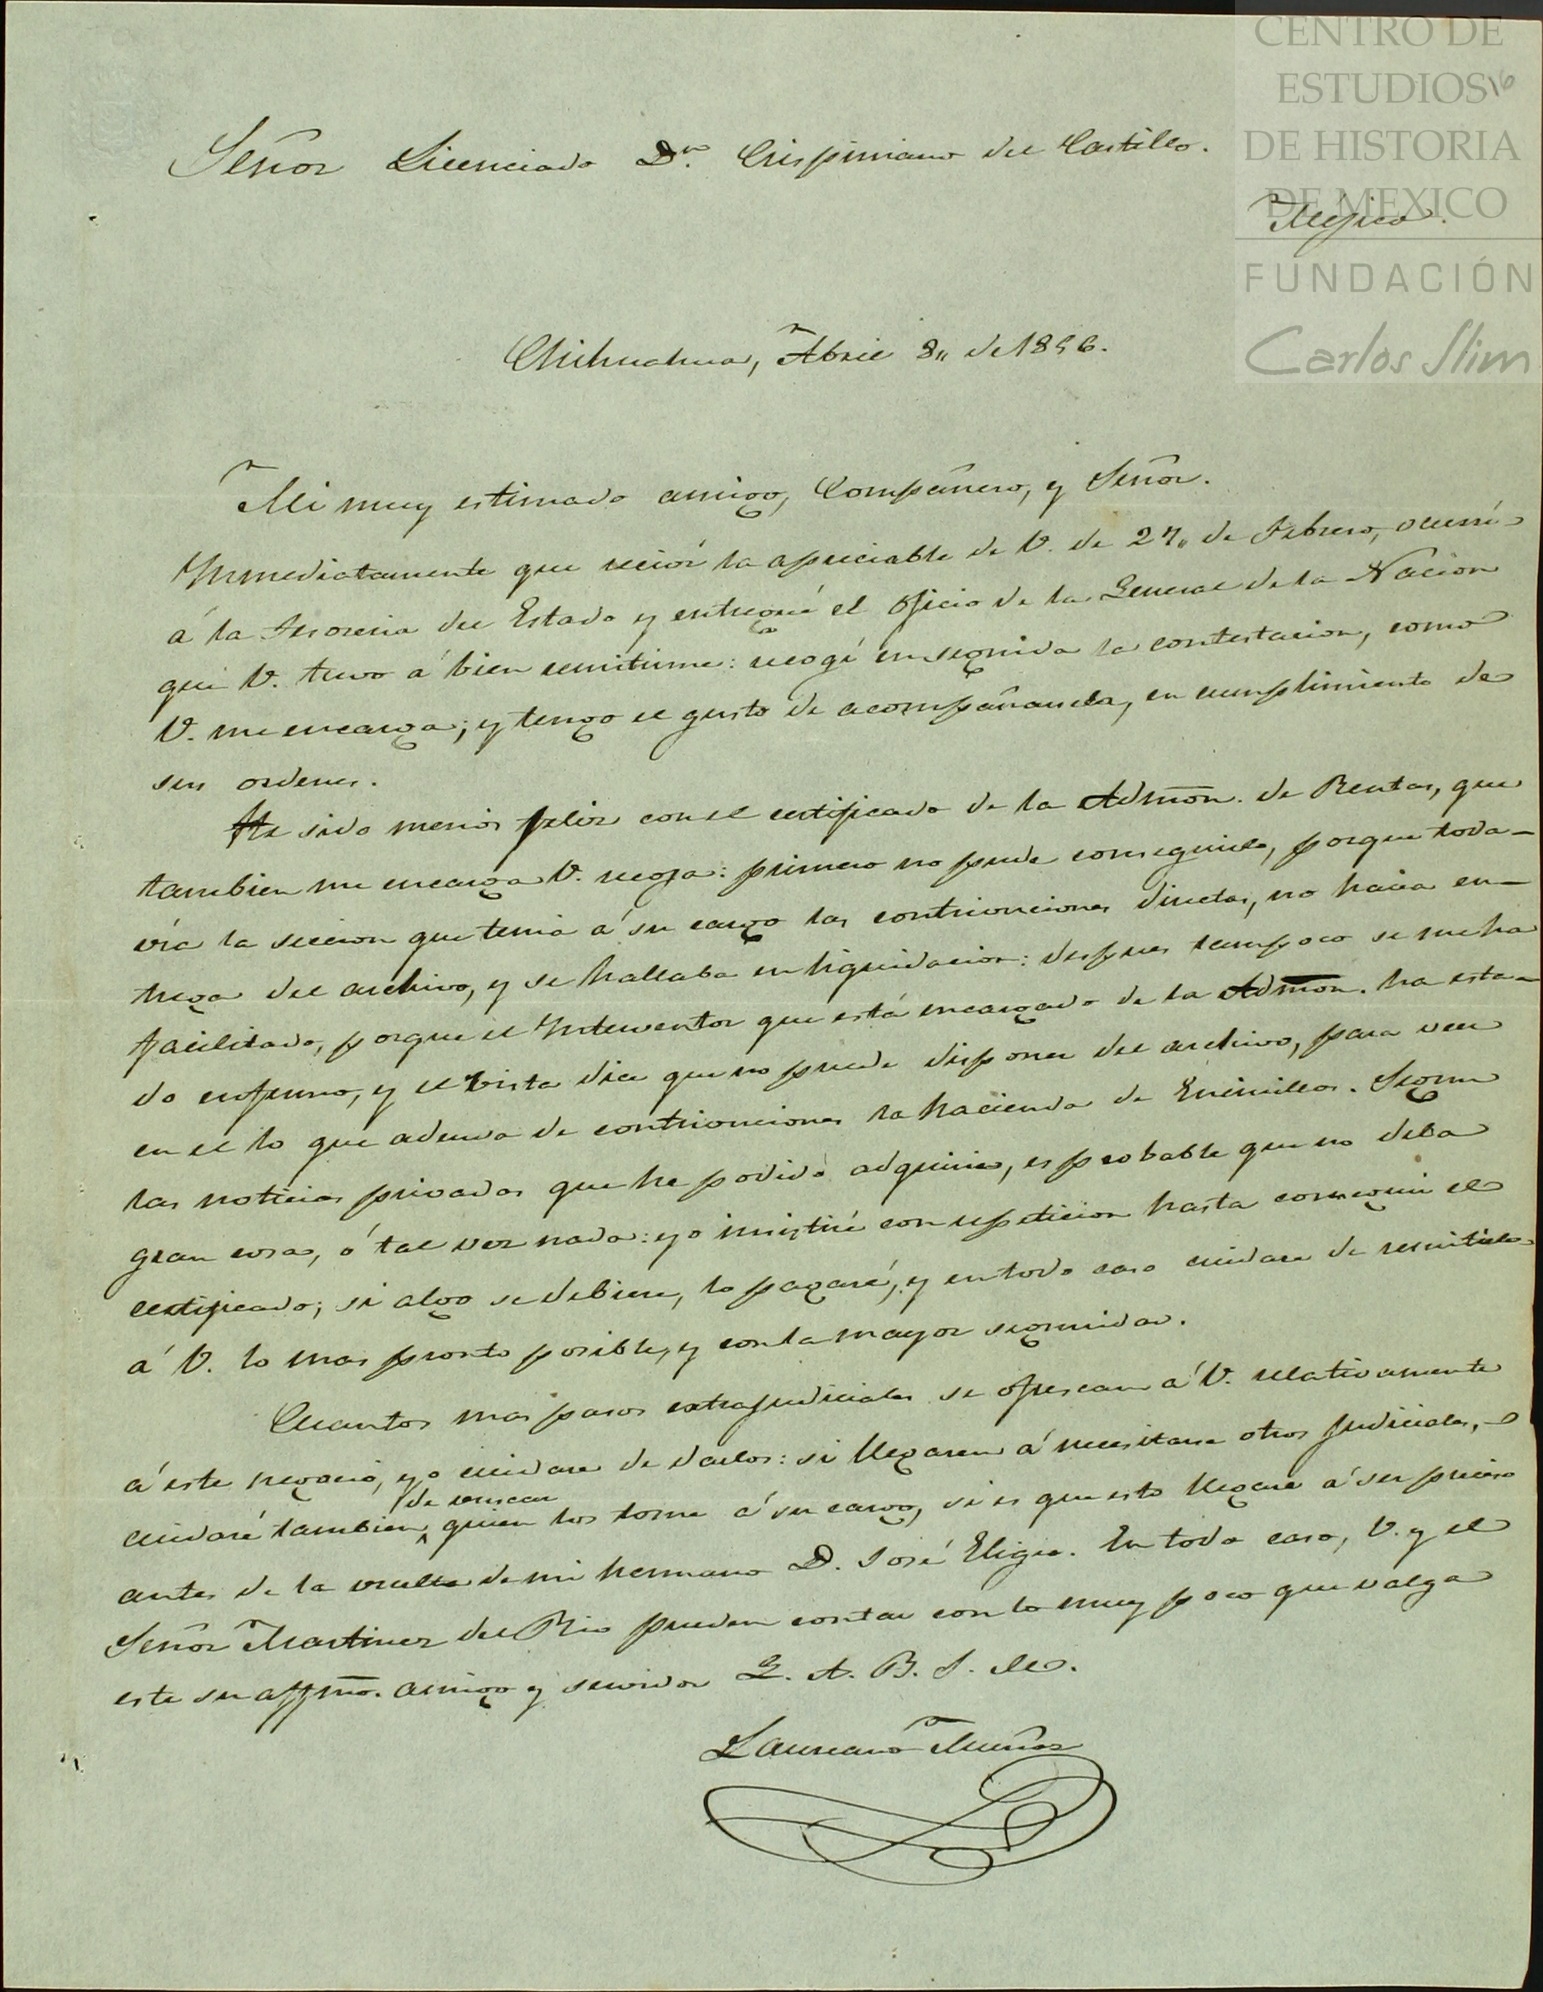 CENTRO DE
ESTUDIOS
DE HISTORIA
DE MEXICO
FUNDACIÓN
Carlos Slim
16
Señor Licenciado Dn. Crispiniano del Castillo.
Mejico.
Chihuahua, Abril 8,, de 1856.
Mi muy estimado amigo, Compañero, y Señor.
Ynmediatamente que recibí la apreciable de V. de 27,, de Febrero, ocurrí
á la Tesoreria del Estado y entregué el oficio de la General de la Nacion
que V. tuvo á bien remitirme: recogí en seguida la contestacion, como
V. me encarga; y tengo el gusto de acompañarsela, en cumplimiento de
sus ordenes.
He sido menos feliz con el certificado de la Admon. de Rentas, que
tambien me encarga V. recoja: primero no pude conseguirlo, porque toda-
vía la seccion que tenia á su cargo las contribuciones directas, no hacia en-
trega del archivo, y se hallaba en liquidacion: despues tampoco se me ha
facilitado, porque el Ynterventor que está encargado de la Admon. ha esta-
do enfermo, y el Vista dice que no puede disponer del archivo, para ver
en el lo que adeuda de contribuciones la hacienda de Encinillas. Segun
las noticias privadas que he podido adquirir, es probable que no deba
gran cosa, ó tal vez nada: yo insistiré con repeticion hasta conseguir el
certificado; si algo se debiere, lo pagaré, y en todo caso cuidare de remitirlo
á V. lo mas pronto posible, y con la mayor seguridad.
Cuantos mas pasos extrajudiciales se ofrescan á V. relativamente
á este negocio, yo cuidare de darlos: si llegaren á necesitarse otros judiciales,
cuidaré tambien de buscar quien los tome á su cargo, si es que esto llegare á ser preciso
antes de la vuelta de mi hermano D. José Eligio. En todo caso, V. y el
Señor Martinez del Rio pueden contar con lo muy poco que valga
este su affmo. amigo y servidor Q. A. B. S. M.
Laureano Muñoz